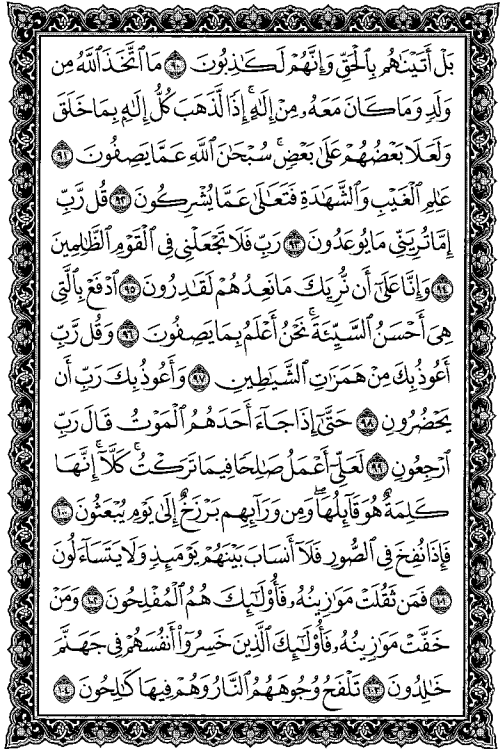 بَلْ أَتَيْنَـٰهُم بِٱلْحَقِّ وَإِنَّهُمْ لَكَـٰذِبُونَ ٩٠ مَا ٱتَّخَذَ ٱللَّهُ مِن
وَلَدٍ وَمَا كَانَ مَعَهُۥ مِنْ إِلَـٰهٍ ۚ إِذًا لَّذَهَبَ كُلُّ إِلَـٰهٍۭ بِمَا خَلَقَ
وَلَعَلَا بَعْضُهُمْ عَلَىٰ بَعْضٍ ۚ سُبْحَـٰنَ ٱللَّهِ عَمَّا يَصِفُونَ ٩١
عَـٰلِمِ ٱلْغَيْبِ وَٱلشَّهَـٰدَةِ فَتَعَـٰلَىٰ عَمَّا يُشْرِكُونَ ٩٢ قُل رَّبِّ
إِمَّا تُرِيَنِّى مَا يُوعَدُونَ ٩٣ رَبِّ فَلَا تَجْعَلْنِى فِى ٱلْقَوْمِ ٱلظَّـٰلِمِينَ
٩٤ وَإِنَّا عَلَىٰٓ أَن نُّرِيَكَ مَا نَعِدُهُمْ لَقَـٰدِرُونَ ٩٥ ٱدْفَعْ بِٱلَّتِى
هِىَ أَحْسَنُ ٱلسَّيِّئَةَ ۚ نَحْنُ أَعْلَمُ بِمَا يَصِفُونَ ٩٦ وَقُل رَّبِّ
أَعُوذُ بِكَ مِنْ هَمَزَٰتِ ٱلشَّيَـٰطِينِ ٩٧ وَأَعُوذُ بِكَ رَبِّ أَن
يَحْضُرُونِ ٩٨ حَتَّىٰٓ إِذَا جَآءَ أَحَدَهُمُ ٱلْمَوْتُ قَالَ رَبِّ
ٱرْجِعُونِ ٩٩ لَعَلِّىٓ أَعْمَلُ صَـٰلِحًا فِيمَا تَرَكْتُ ۚ كَلَّآ ۚ إِنَّهَا
كَلِمَةٌ هُوَ قَآئِلُهَا ۖ وَمِن وَرَآئِهِم بَرْزَخٌ إِلَىٰ يَوْمِ يُبْعَثُونَ ١٠٠
فَإِذَا نُفِخَ فِى ٱلصُّورِ فَلَآ أَنسَابَ بَيْنَهُمْ يَوْمَئِذٍ وَلَا يَتَسَآءَلُونَ
١٠١ فَمَن ثَقُلَتْ مَوَٰزِينُهُۥ فَأُو۟لَـٰٓئِكَ هُمُ ٱلْمُفْلِحُونَ ١٠٢ وَمَنْ
خَفَّتْ مَوَٰزِينُهُۥ فَأُو۟لَـٰٓئِكَ ٱلَّذِينَ خَسِرُوٓا۟ أَنفُسَهُمْ فِى جَهَنَّمَ
خَـٰلِدُونَ ١٠٣ تَلْفَحُ وُجُوهَهُمُ ٱلنَّارُ وَهُمْ فِيهَا كَـٰلِحُونَ ١٠٤